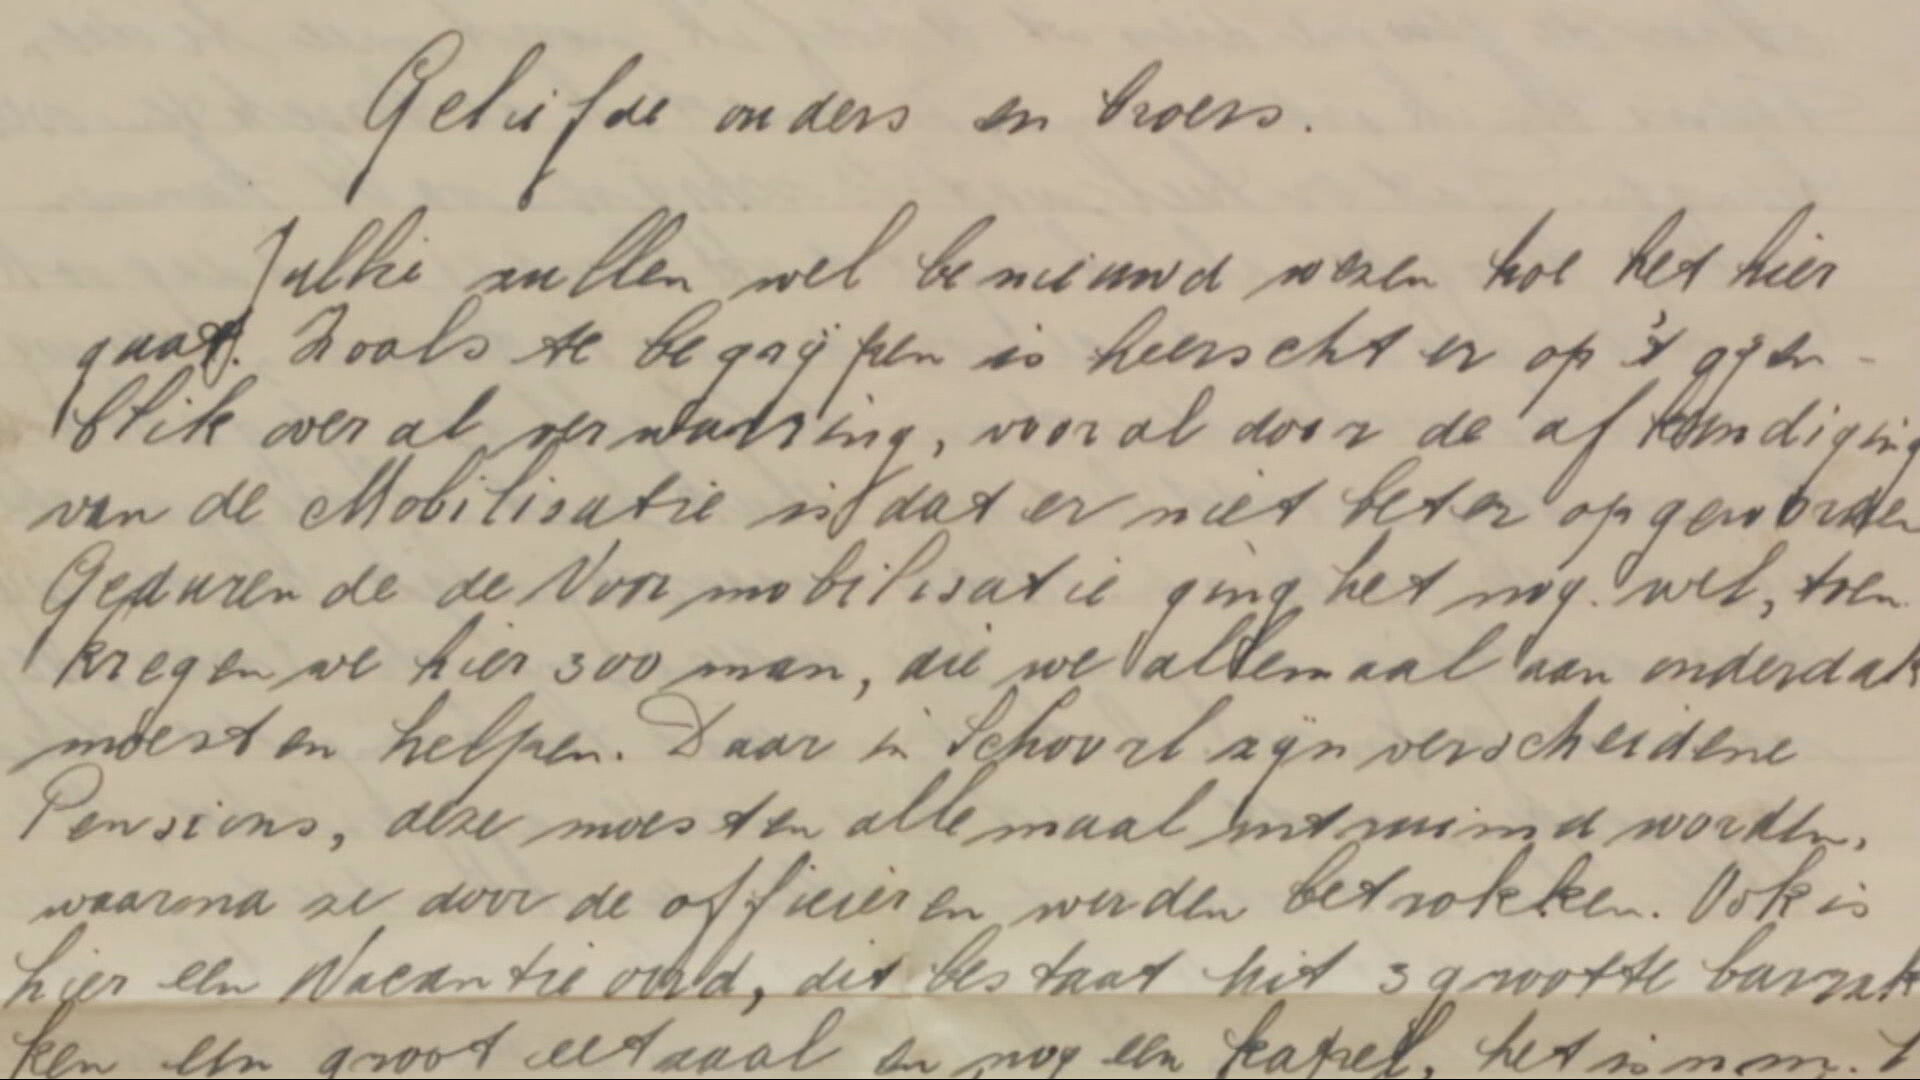 Geliefde ouders en broers.
Jullie zullen wel benieuwd wezen hoe het hier
gaat. Zooals te begrijpen is heerscht er op 't ogen-
blik overal verwarring, vooral door de afkondiging
van de Mobilisatie is dat er niet beter op geworden
Gedurende de Voormobilisatie ging het nog wel, toen
kregen we hier 300 man, die we allemaal aan onderdak
moesten helpen. Daar in Schoorl zijn verscheidene
Pensions, deze moesten allemaal ontruimd worden,
waarna ze door de officieren werden betrokken. Ook is
hier een Vacantieoord, dit bestaat uit 3 grootte barrak
ken een groot eetzaal en nog een kapel, het is n.m.